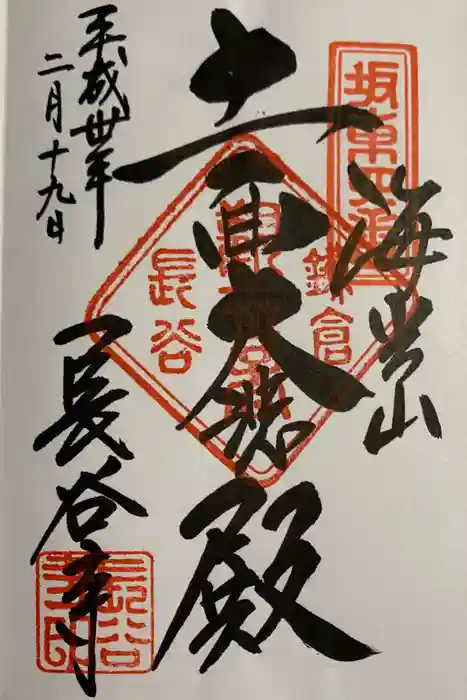 坂東四番
海光山
十一面大悲殿
鎌倉
長谷
長谷寺
平成卅年
二月十九日